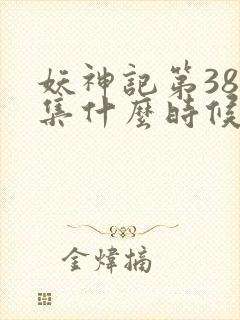 妖神記第38
集什麼時候
金煒摘